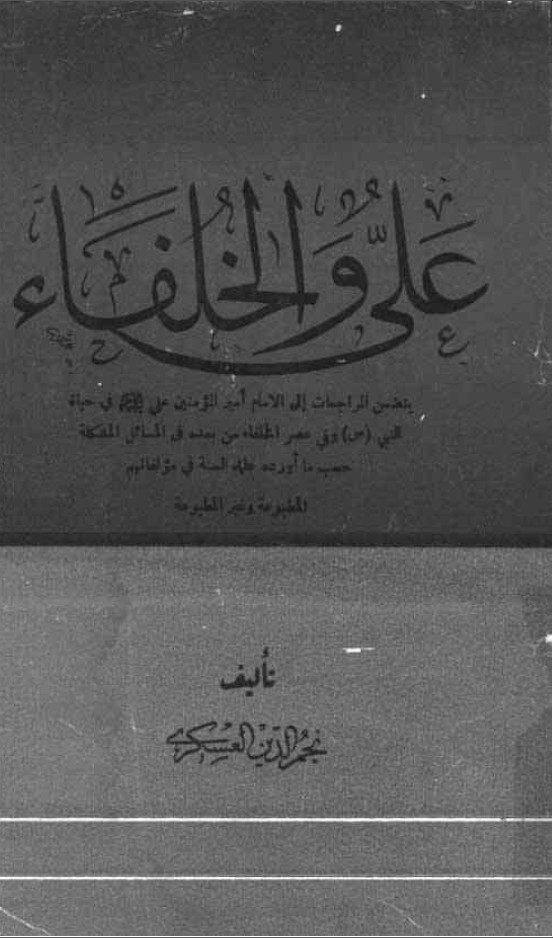 علي والخلفاء
يتضمن المراجعات إلى الامام أمير المؤمنين علي في حياة
النبي (ص) وفي عصر الخلفاء من بعده في المسائل المشكلة
حسب ما أورده علماء السنة في مؤلفاتهم
المطبوعة وغير المطبوعة
تأليف
نجم الدين العسكري